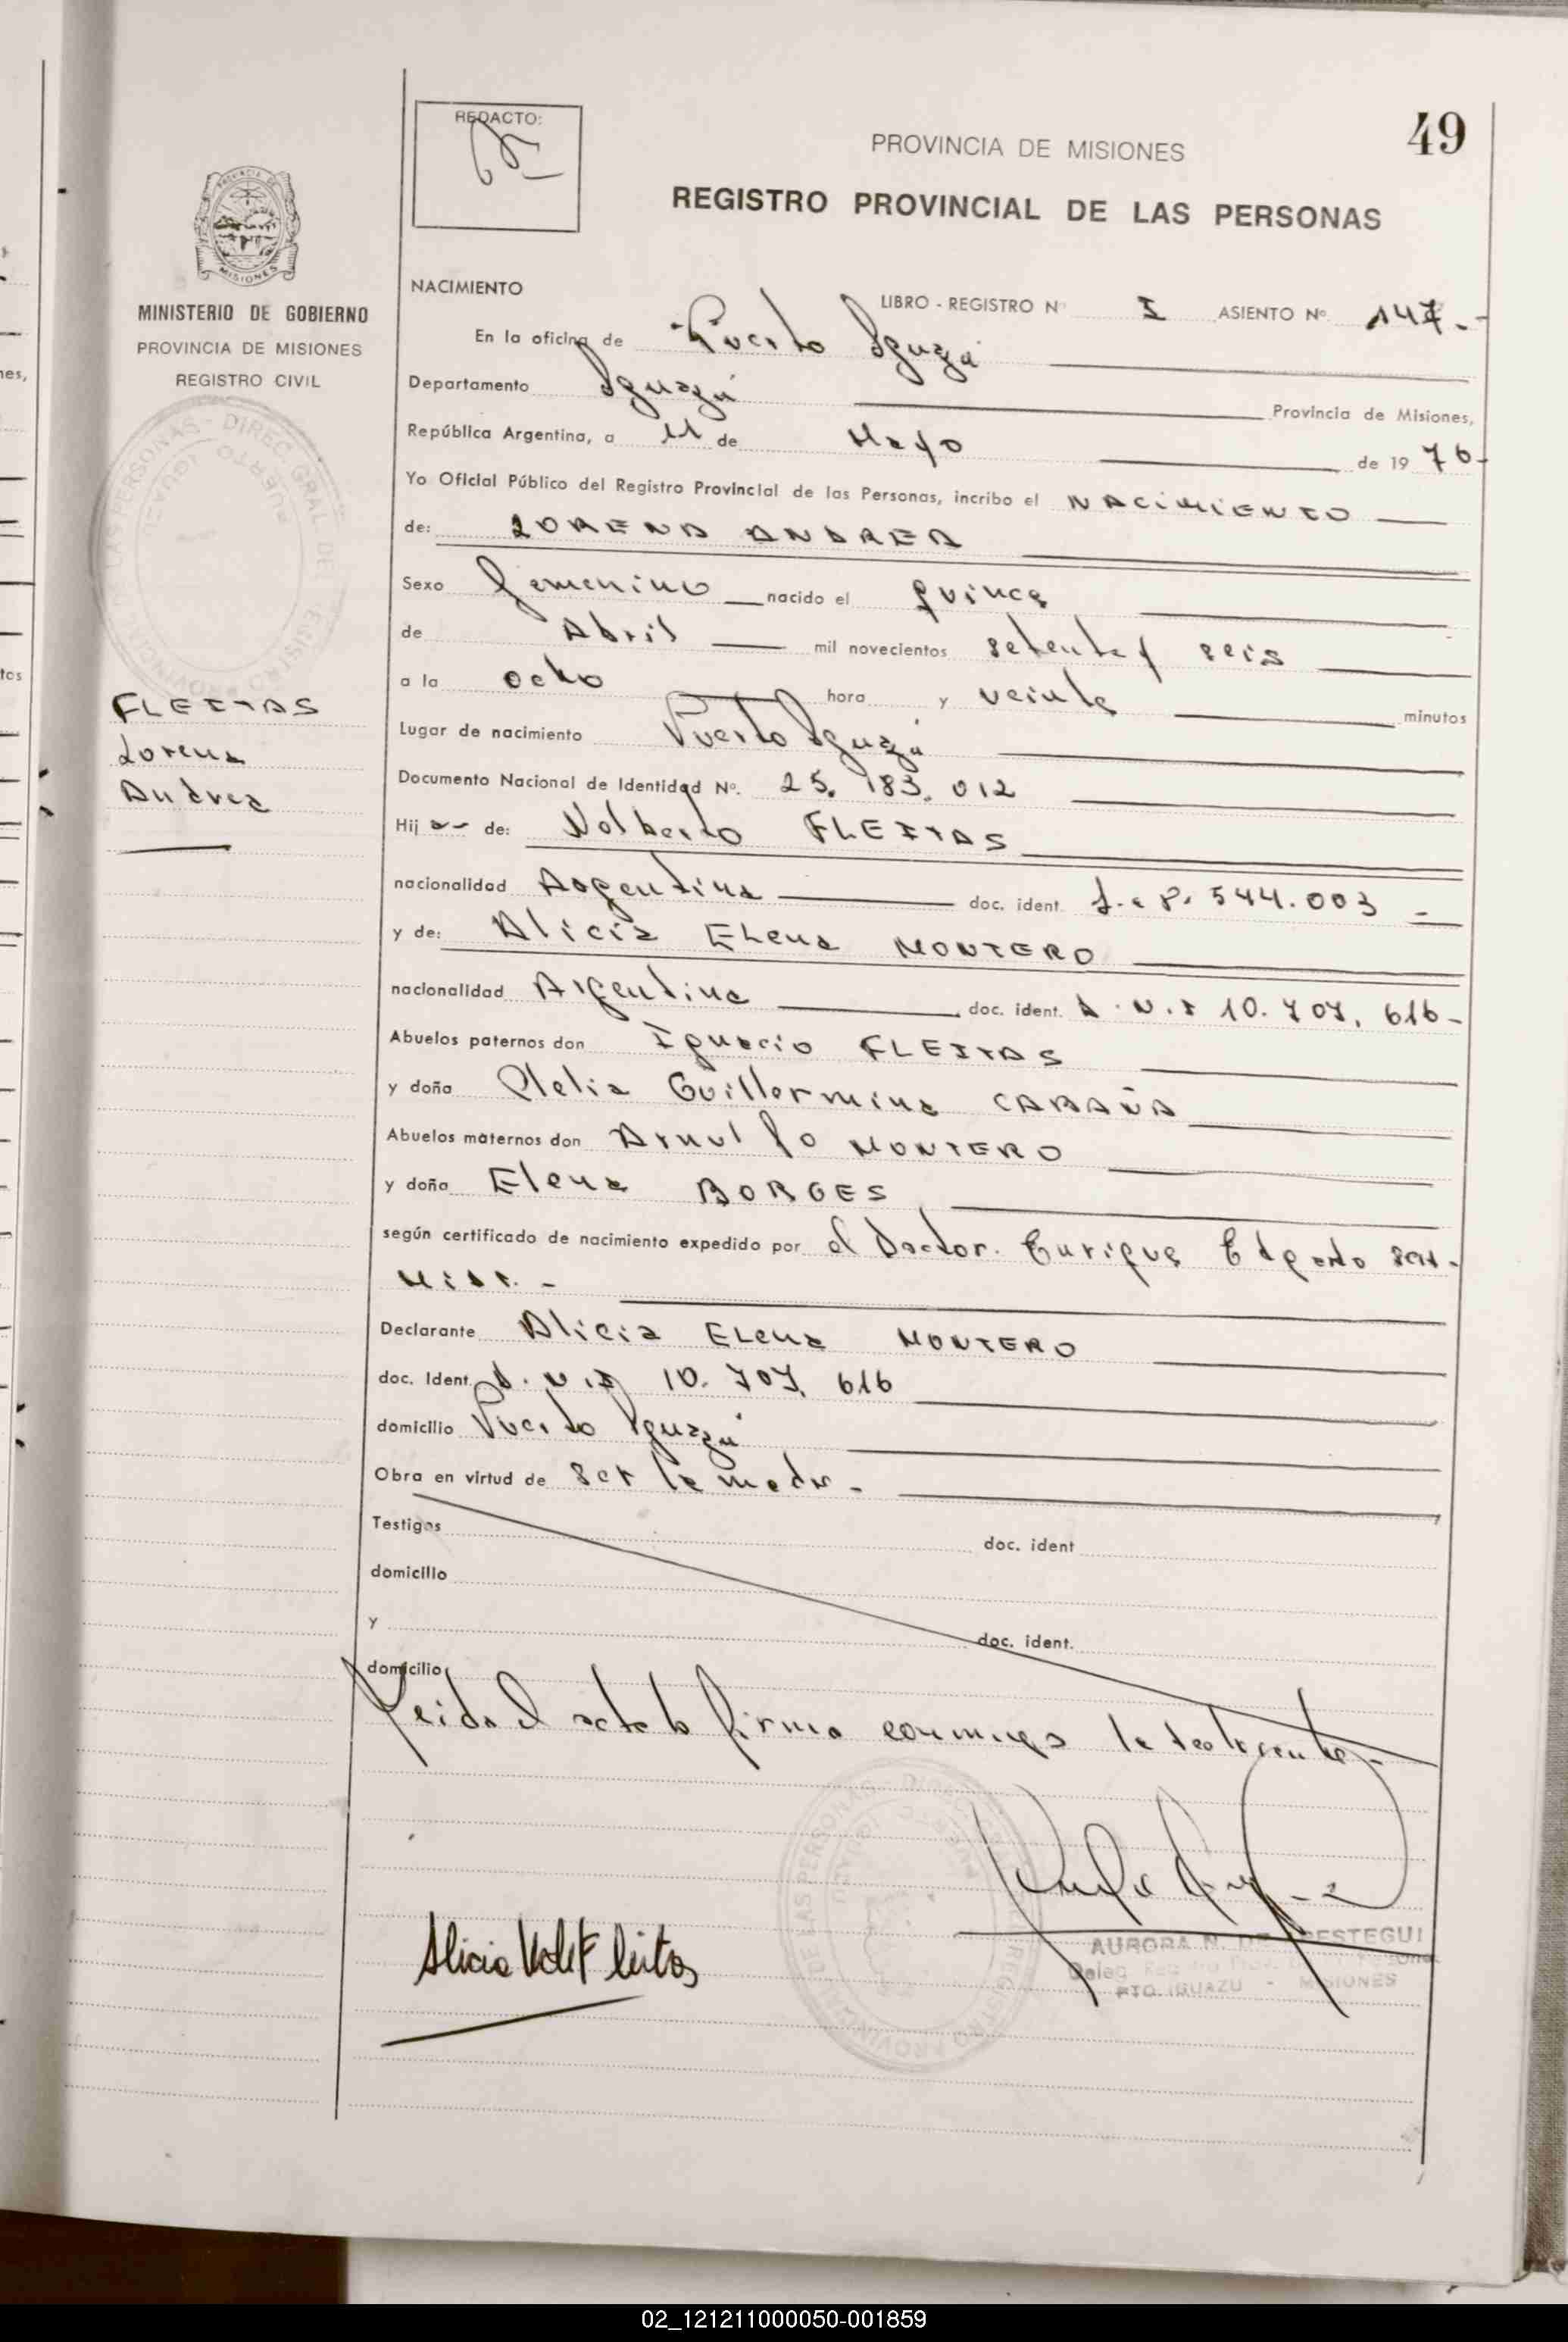 REDACTO:
49
PROVINCIA DE MISIONES
REGISTRO PROVINCIAL DE LAS PERSONAS
MISIONES
MINISTERIO DE GOBIERNO
PROVINCIA DE MISIONES
REGISTRO CIVIL
FLEITAS
Lorena
Andrea
NACIMIENTO
LIBRO - REGISTRO Nº I ASIENTO Nº 147.-
En la oficina de Puerto Iguazú
Departamento Iguazú Provincia de Misiones,
República Argentina, a 11 de Mayo de 1976-
Yo Oficial Público del Registro Provincial de las Personas, incribo el NACIMIENTO
de: LORENA ANDREA
Sexo femenino nacido el quince
de Abril mil novecientos setenta y seis
a la ocho hora y veinte minutos
Lugar de nacimiento Puerto Iguazú
Documento Nacional de Identidad Nº. 25. 183. 012
Hij a- de: Nolberto FLEITAS
nacionalidad Argentina doc. ident. 544.003
y de: Alicia Elena MONTERO
nacionalidad Argentina doc. ident. D.N.I 10. 707. 616-
Abuelos paternos don Ignacio FLEITAS
y doña Clelia Guillermina CABAÑA
Abuelos maternos don Arnulfo MONTERO
y doña Elena BORGES
según certificado de nacimiento expedido por el Doctor. Enrique Edgardo SCH-
MIDT. -
Declarante Alicia Elena MONTERO
doc. Ident. D.N.I 10. 707. 616
domicilio Puerto Iguazú
Obra en virtud de ser la madre. -
Testigos doc. ident
domicilio
y doc. ident.
domicilio
Leida el acta la firma conmigo la declarante.-
Alicia de Fleitas
AURORA N. DE
PTO. IGUAZU - MISIONES
02_121211000050-001859